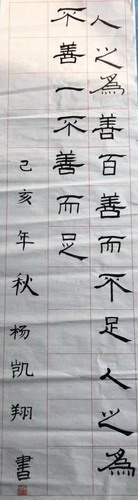 人之為善百善而不足人之為
不善一不善而足
己亥年秋杨凯翔書